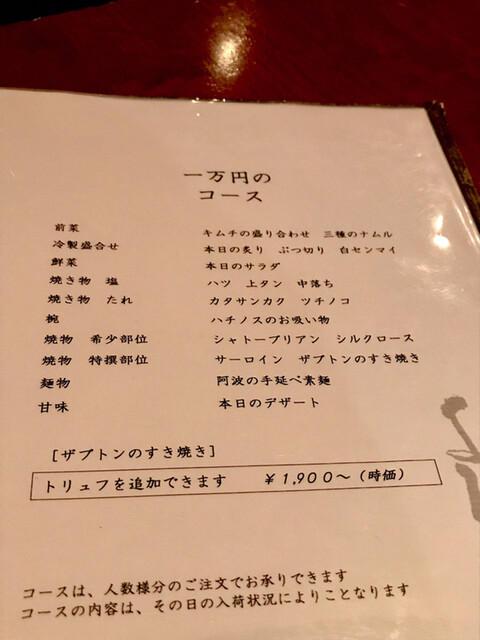 一万円の
コース
前菜 キムチの盛り合わせ 三種のナムル
冷製盛合せ 本日の炙り ぶつ切り 白センマイ
鮮菜 本日のサラダ
焼き物 塩 ハツ 上タン 中落ち
焼き物 たれ カタサンカク ツチノコ
椀 ハチノスのお吸い物
焼物 希少部位 シャトーブリアン シルクロース
焼物 特撰部位 サーロイン ザブトンのすき焼き
麺物 阿波の手延べ素麺
甘味 本日のデザート
[ザブトンのすき焼き]
トリュフを追加できます ￥1,900～(時価)
コースは、人数様分のご注文でお承りできます
コースの内容は、その日の入荷状況によりことなります